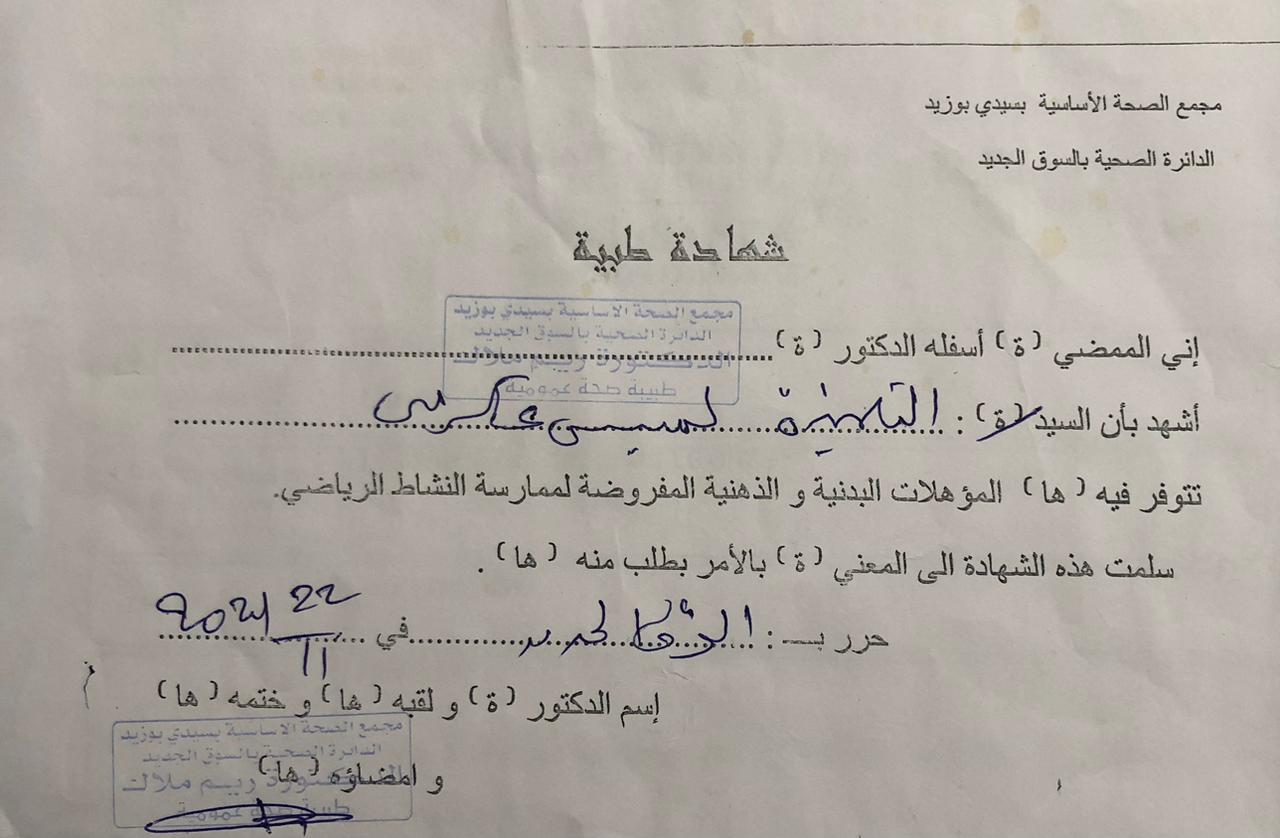 مجمع الصحة الأساسية بسيدي بوزيد
الدائرة الصحية بالسوق الجديد
شهادة طبية
مجمع الصحة الاساسية بسيدي بوزيد
الدائرة الصحية بالسوق الجديد
إني الممضي (ة) أسفله الدكتور (ة)
الدكتورة ريم ملاك
طبيبة صحة عمومية
أشهد بأن السيد (ة) : التلميذة لميس
تتوفر فيه (ها) المؤهلات البدنية و الذهنية المفروضة لممارسة النشاط الرياضي.
سلمت هذه الشهادة الى المعني (ة) بالأمر بطلب منه (ها) .
حرر بـــ : في 22 11
إسم الدكتور (ة) و لقبه (ها) و ختمه (ها)
مجمع الصحة الاساسية بسيدي بوزيد
الدائرة الصحية بالسوق الجديد
و امضاؤه (ها)
الدكتورة ريم ملاك
طبيبة صحة عمومية